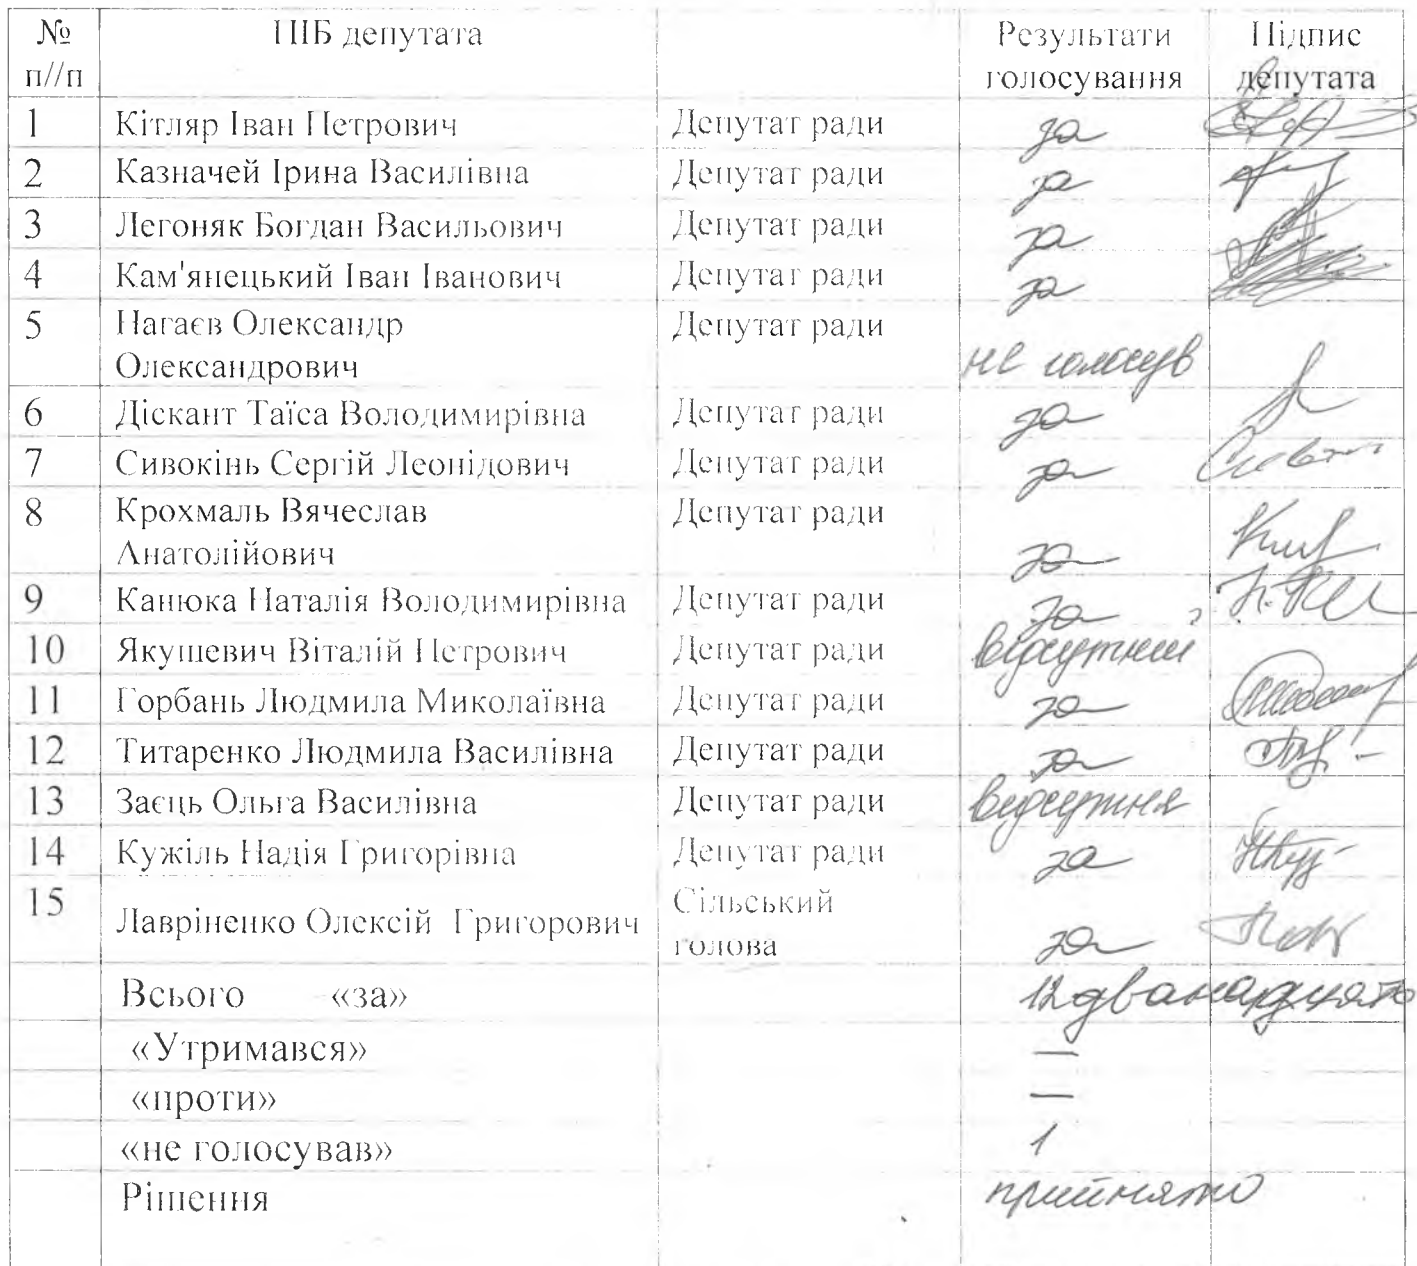 № ПІБ депутата Результати Підпис
п//п голосування депутата
1 Кітляр Іван Петрович Депутат ради за
2 Казначей Ірина Василівна Депутат ради за
3 Легоняк Богдан Васильович Депутат ради за
4 Кам'янецький Іван Іванович Депутат ради за
5 Нагаєв Олександр Депутат ради
Олександрович не голосув
6 Діскант Таїса Володимирівна Депутат ради за
7 Сивокінь Сергій Леонідович Депутат ради за
8 Крохмаль Вячеслав Депутат ради
Анатолійович за
9 Канюка Наталія Володимирівна Депутат ради за
10 Якушевич Віталій Петрович Депутат ради відсутній
11 Горбань Людмила Миколаївна Депутат ради за
12 Титаренко Людмила Василівна Депутат ради за
13 Заєць Ольга Василівна Депутат ради відсутня
14 Кужіль Надія Григорівна Депутат ради за
15 Лавріненко Олексій Григорович Сільський
голова за
Всього «за» 12 дванадцять
«Утримався» —
«проти» —
«не голосував» 1
Рішення прийнято